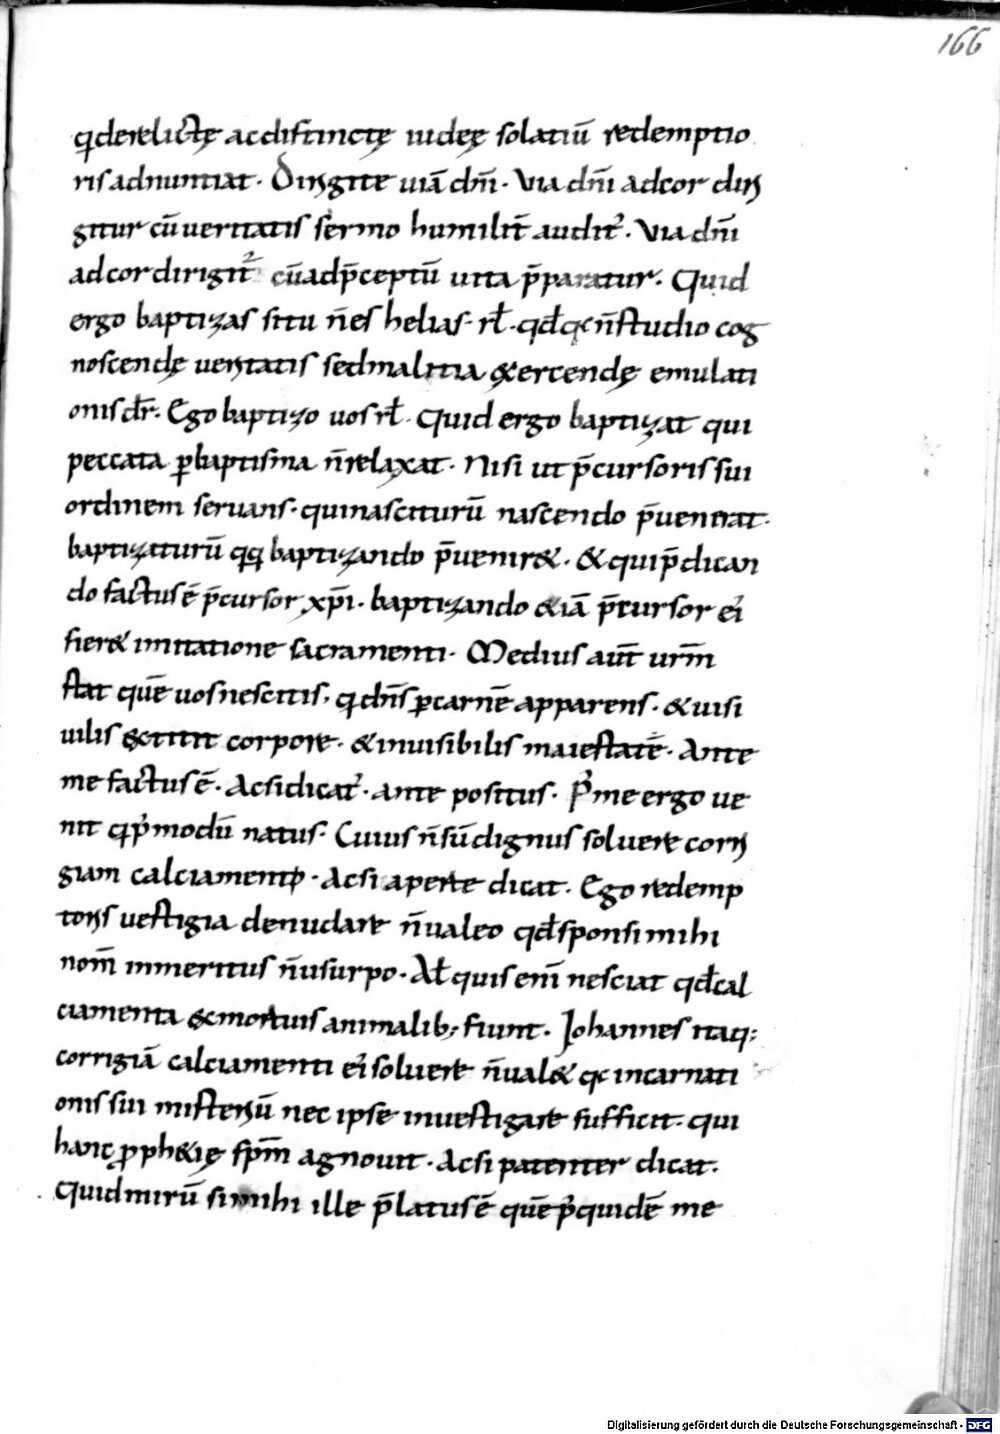 166
q̃derelictę acdistinctę iudeę solatiũ redemptio
ris adnuntiat. Dirigite uiã dñi. Via dñi adcor diri
gitur cũ ueritatis sermo humilit̃ audit᷑. Via dñi
adcor dirigit᷑ cũ adp̃ceptũ uita p̃paratur. Quid
ergo baptizas situ ñ es helias. rł. qđ qꝛ ñ studio cog
noscendę ueritatis sed malitia exercendę emulati
onis dr̃. Ego baptizo uos rł. Quid ergo baptizat qui
peccata ꝑ baptisma ñ relaxat. Nisi ut p̃cursoris sui
ordinem seruans. qui nasciturũ nascendo p̃uenerat.
baptizaturũ qq baptizando p̃uenir&. & qui p̃dican
do factus ẽ p̃cursor xp̃i. baptizando &iã p̃cursor ei᷒
fier& imitatione sacramenti. Medius aut̃ ur̃m
stat quẽ uos nescitis, q̃ dñs ꝑ carnẽ apparens. & uisi
uilis extitit corpore. & inuisibilis maiestatẽ. Ante
me factus ẽ. Acsi dicat᷑. ante positus. P᷒ me ergo ue
nit q̃ p᷒modũ natus. Cuius ñ sũ dignus soluere corri
giam calciamenti. Acsi aperte dicat. Ego redemp
toris uestigia denudare ñ ualeo qđ sponsi mihi
nom̃ inmeritus ñ usurpo. Ał quis eni᷑ nesciat qđ cal
ciamenta ex mortuis animalib; fiunt. Johannes itaq;
corrigiã calciamenti ei᷒ soluere ñ ual& qꝛ incarnati
onis sui misteriũ nec ipse inuestigare sufficit. qui
hanc ꝓph&ię sp̃m agnouit. Acsi patenter dicat.
Quid mirũ si mihi ille p̃latus ẽ quẽ p᷒ quidẽ me
Digitalisierung gefördert durch die Deutsche Forschungsgemeinschaft - DFG